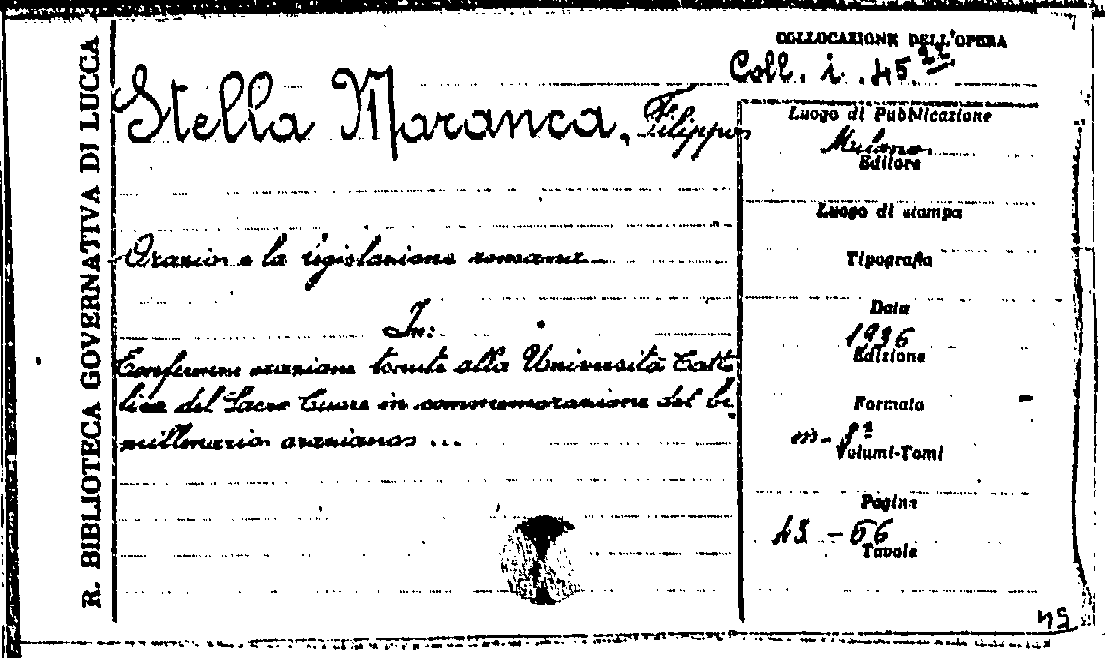 R. BIBLIOTECA GOVERNATIVA DI LUCCA
COLLOCAZIONE DELL'OPERA
Coll. i. 45.22
Stella Maranca, Filippo
Orazio e la legislazione romana
In:
Conferenze oraziane tenute alla Università Catto
lica del Sacro Cuore in commemorazione del bi
millenario oraziano ...
Luogo di Pubblicazione
Milano
Editore
Luogo di stampa
Tipografia
Data
1936
Edizione
Formato
in-8º
Volumi-Tomi
Pagine
43 - 56
Tavole